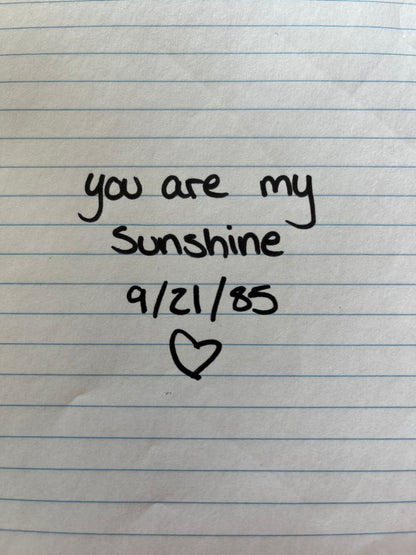 you are my
sunshine
9/21/85